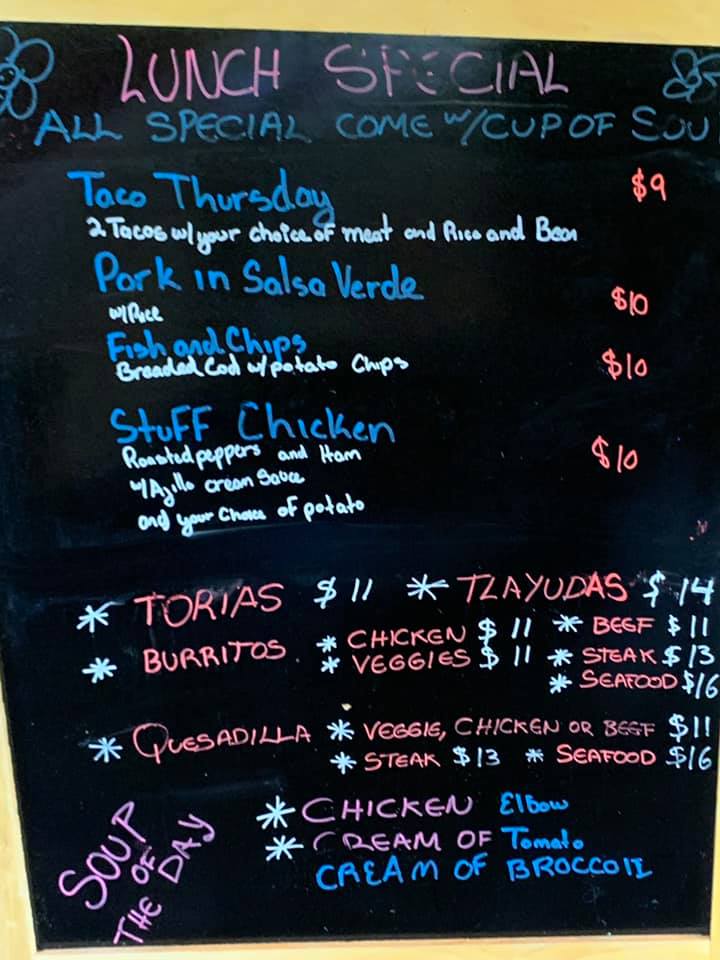 LUNCH SPECIAL
ALL SPECIAL COME W/CUP OF SOU
Taco Thursday $9
2 Tacos w/your choice of meat and Rice and Bean
Pork in Salsa Verde
w/Rice $10
Fish and Chips
Breaded Cod w/potato Chips $10
Stuff Chicken
Roasted peppers and Ham $10
w/Ajillo cream Sauce
and your Choice of potato
* TORIAS $11 * TLAYUDAS $14
* BURRITOS * CHICKEN $11 * BEEF $11
* VEGGIES $11 * STEAK $13
* SEAFOOD $16
* QUESADILLA * VEGGIE, CHICKEN OR BEEF $11
* STEAK $13 * SEAFOOD $16
SOUP OF THE DAY
* CHICKEN Elbow
* CREAM OF Tomato
CREAM OF BROCCOLI